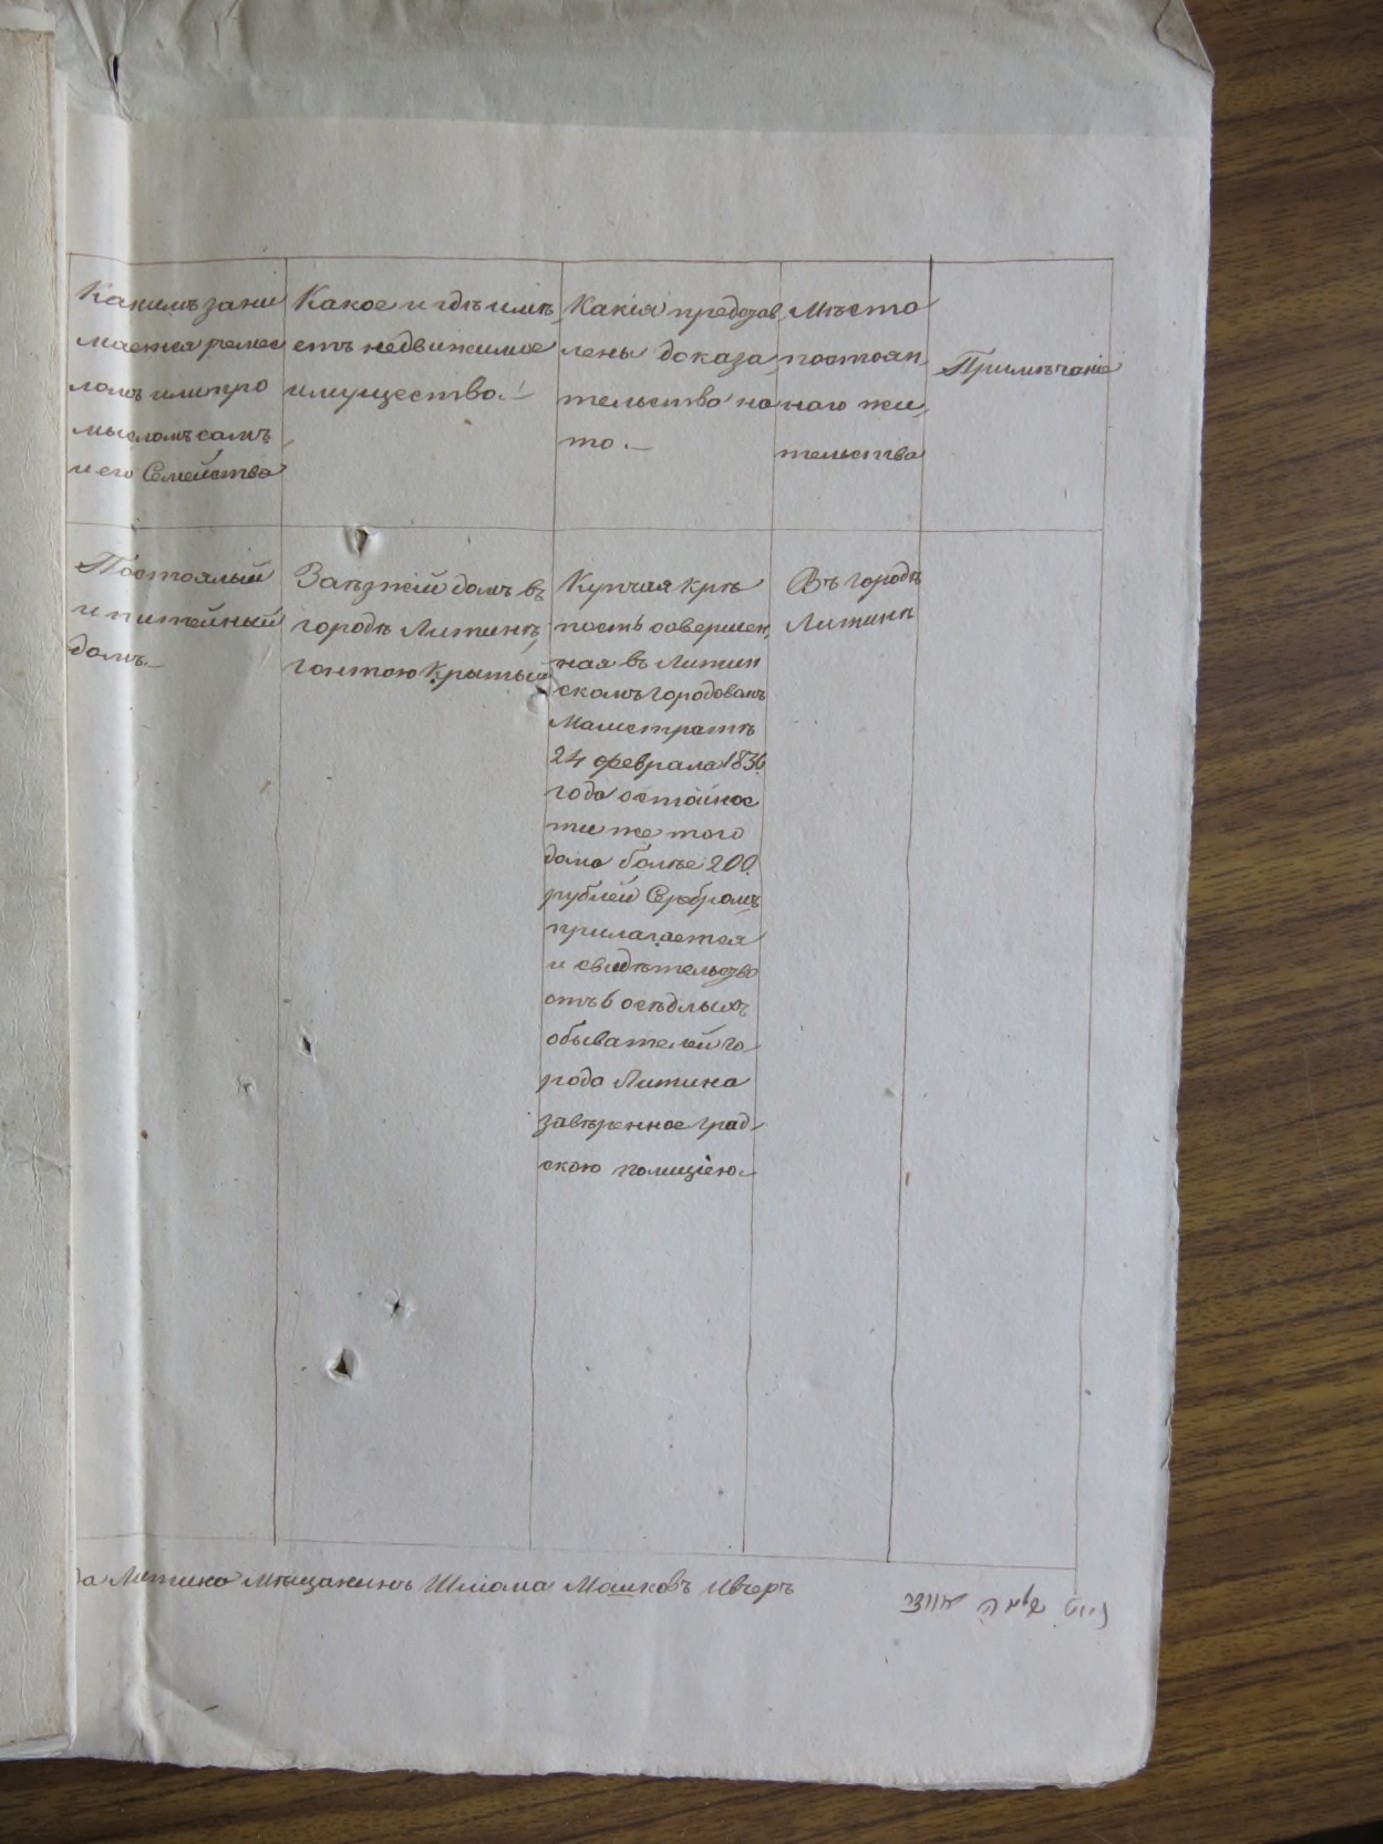 Какимъ зани
мается ремес
ломъ или про
мысломъ самъ
и его Семейства
Какое и гдѣ имѣ
етъ недвижимое
имущество.
Какія представ
лены доказа
тельства на
то.
Мѣсто
постоян
наго жи
тельства
Примѣчаніе
Постоялый
и питейный
домъ.
Заѣзжій домъ въ
городѣ Литинѣ,
гонтою крытый
Купчая крѣ
пость совершен
ная въ Литин
скомъ городовомъ
Магистратѣ
24 февраля 1836
года о стоимос
ти же того
дома болѣе 200
рублей Серебромъ
прилагается
и свидѣтельство
отъ 6 осѣдлыхъ
обывателей го
рода Литина
завѣренное град
скою полициею.
Въ городѣ
Литинѣ
да Литина мѣщанинъ Шлома Машковъ Ивчеръ
שלמה